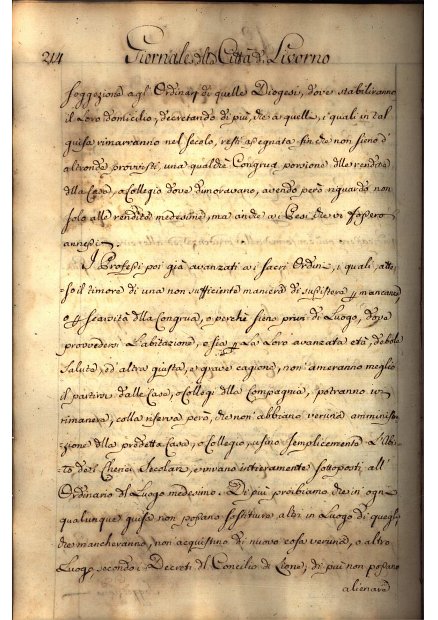 244 Giornale della Città di Livorno
soggezione agl' Ordinarj di quelle Diogesi, dove stabiliranno
il Loro domicilio, decretando di più, che a quelli, i quali in tal
guisa rimarranno nel secolo, resti assegnata finche non sieno d'
altronde provvisti, una qualche Congrua porzione delle rendite
della Casa, o Collegio dove dimoravano, avendo però riguardo non
solo alle rendite medesime, ma anche a Pesi che vi fossero
annessi.
I Professi poi già avanzati a i sacri Ordini, i quali, atte-
so il timore di una non sufficiente maniera di sussistere per mancanza
o scarsità della Congrua, o perchè sieno privi di Luogo, dove
provvedersi l'abitazione, o sia per la Loro avanzata età, debole
salute, ed altra giusta, e grave cagione, non ameranno meglio
il partirsi dalle Case, o Collegj della Compagnia, potranno ivi
rimanere, colla riserva però, che non abbiano veruna amministra-
zione della predetta Casa, o Collegio, usino semplicemente l'Abi-
to de i Cherici Secolari, e vivano intieramente sottoposti all'
Ordinario del Luogo medesimo. Di più proibiamo che in ogni
qualunque guisa non possano sostituire altri in Luogo di quegli,
che mancheranno, non acquistino di nuovo cosa veruna, o altro
Luogo, secondo i Decreti del Concilio di Lione; di più non possano
alienare